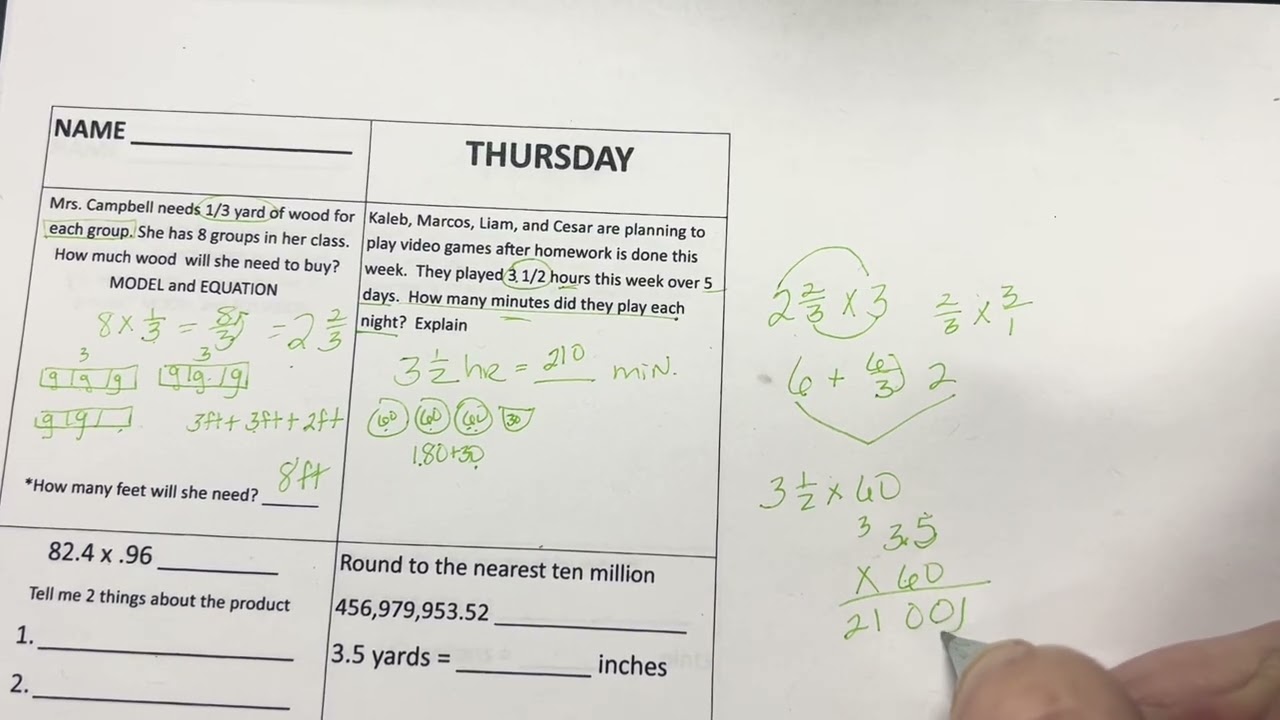 NAME
THURSDAY
Mrs. Campbell needs 1/3 yard of wood for
each group. She has 8 groups in her class.
How much wood will she need to buy?
MODEL and EQUATION
8 × 1/3 = 8/3 = 2 2/3
3 3
g g g g g g
g g
3ft + 3ft + 2ft
*How many feet will she need? 8ft
Kaleb, Marcos, Liam, and Cesar are planning to
play video games after homework is done this
week. They played 3 1/2 hours this week over 5
days. How many minutes did they play each
night? Explain
3 1/2 hr = 210 min.
60 60 60 30
180+30
82.4 x .96
Tell me 2 things about the product
1.
2.
Round to the nearest ten million
456,979,953.52
3.5 yards = inches
2 2/3 × 3 2/3 × 3/1
6 + 6/3 2
3 1/2 × 60
3 3.5
× 60
2100